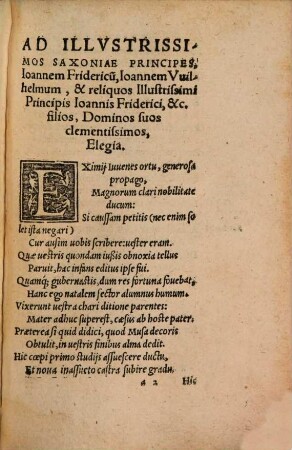 AD ILLVSTRISSI-
MOS SAXONIAE PRINCIPES,
Ioannem Fridericū, Ioannem Vuil-
helmum, & reliquos Illustrissimi
Principis Ioannis Friderici, &c.
filios, Dominos suos
clementissimos,
Elegia.
EXimij Iuuenes ortu, generosa
propago,
Magnorum clari nobilitate
ducum:
Si caussam petitis (nec enim so
let ista negari)
Cur ausim uobis scribere: uester eram.
Quæ uestris quondam iußis obnoxia tellus
Paruit, hac infans editus ipse fui.
Quamq; gubernastis, dum res fortuna fouebat,
Hanc ego natalem sector alumnus humum.
Vixerunt uestra chari ditione parentes:
Mater adhuc superest, cæsus ab hoste pater.
Præterea si quid didici, quod Musa decoris
Obtulit, in uestris finibus alma dedit.
Hic cœpi primo studijs assuescere ductu,
Et noua inassueto castra subire gradu.
a 2 Hic